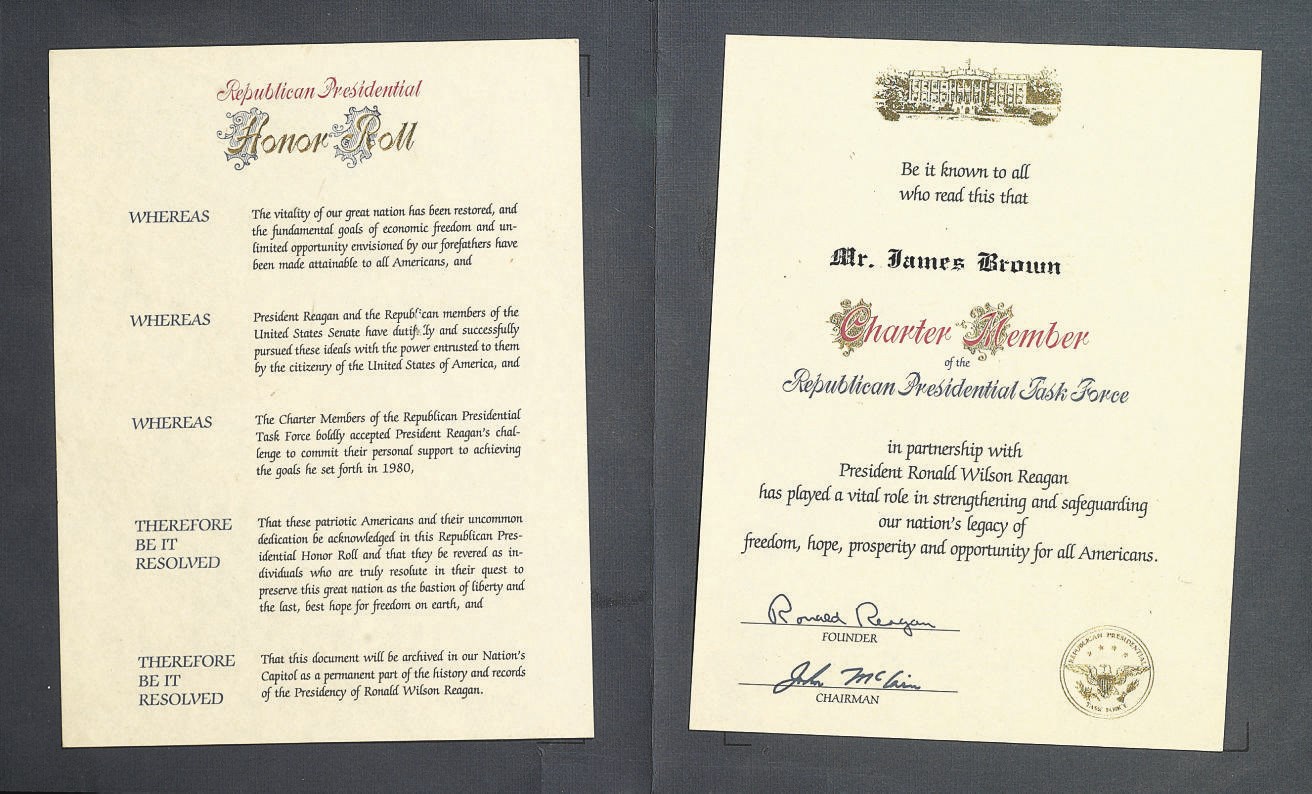 Republican Presidential
Honor Roll
WHEREAS
The vitality of our great nation has been restored, and
the fundamental goals of economic freedom and un-
limited opportunity envisioned by our forefathers have
been made attainable to all Americans, and
WHEREAS
President Reagan and the Republican members of the
United States Senate have dutifully and successfully
pursued these ideals with the power entrusted to them
by the citizenry of the United States of America, and
WHEREAS
The Charter Members of the Republican Presidential
Task Force boldly accepted President Reagan's chal-
lenge to commit their personal support to achieving
the goals he set forth in 1980,
THEREFORE
BE IT
RESOLVED
That these patriotic Americans and their uncommon
dedication be acknowledged in this Republican Pres-
idential Honor Roll and that they be revered as in-
dividuals who are truly resolute in their quest to
preserve this great nation as the bastion of liberty and
the last, best hope for freedom on earth, and
THEREFORE
BE IT
RESOLVED
That this document will be archived in our Nation's
Capitol as a permanent part of the history and records
of the Presidency of Ronald Wilson Reagan.
Be it known to all
who read this that
Mr. James Brown
Charter Member
of the
Republican Presidential Task Force
in partnership with
President Ronald Wilson Reagan
has played a vital role in strengthening and safeguarding
our nation's legacy of
freedom, hope, prosperity and opportunity for all Americans.
Ronald Reagan
FOUNDER
John McCain
CHAIRMAN
REPUBLICAN PRESIDENTIAL
TASK FORCE